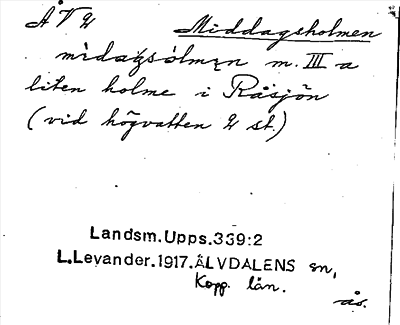 ÅVU Middagsholmen
m. III a
liten holme i Råsjön
(vid högvatten 2 st.)
Landsm.Upps.339:2
L.Levander.1917.ÄLVDALENS sn,
Kopp. län.
ås.